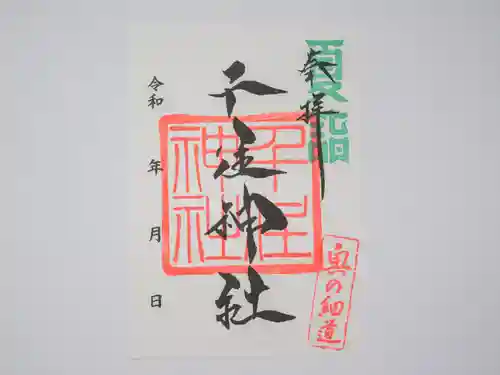 夏詣
奉拝
千住神社
千住神社
奥の細道
令和 年 月 日